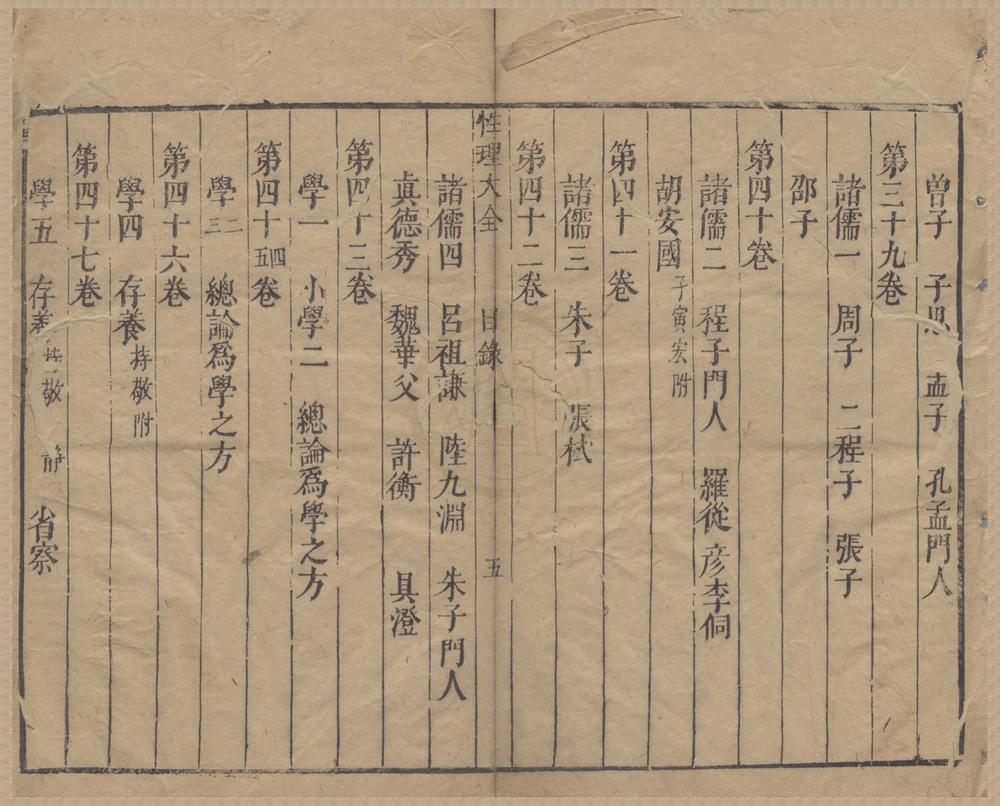 曾子 子思 孟子 孔孟門人
第三十九卷
諸儒一 周子 二程子 張子
邵子
第四十卷
諸儒二 程子門人 羅從彦李侗
胡安國 子寅宏附
第四十一卷
諸儒三 朱子 張栻
第四十二卷
性理大全 目錄 五
諸儒四 呂祖謙 陸九淵 朱子門人
眞德秀 魏華父 許衡 具澄
第四十三卷
學一 小學二 總論爲學之方
第四十四五卷
學二三 總論爲學之方
第四十六卷
學四 存養 持敬附
第四十七卷
學五 存養 持敬 靜 省察